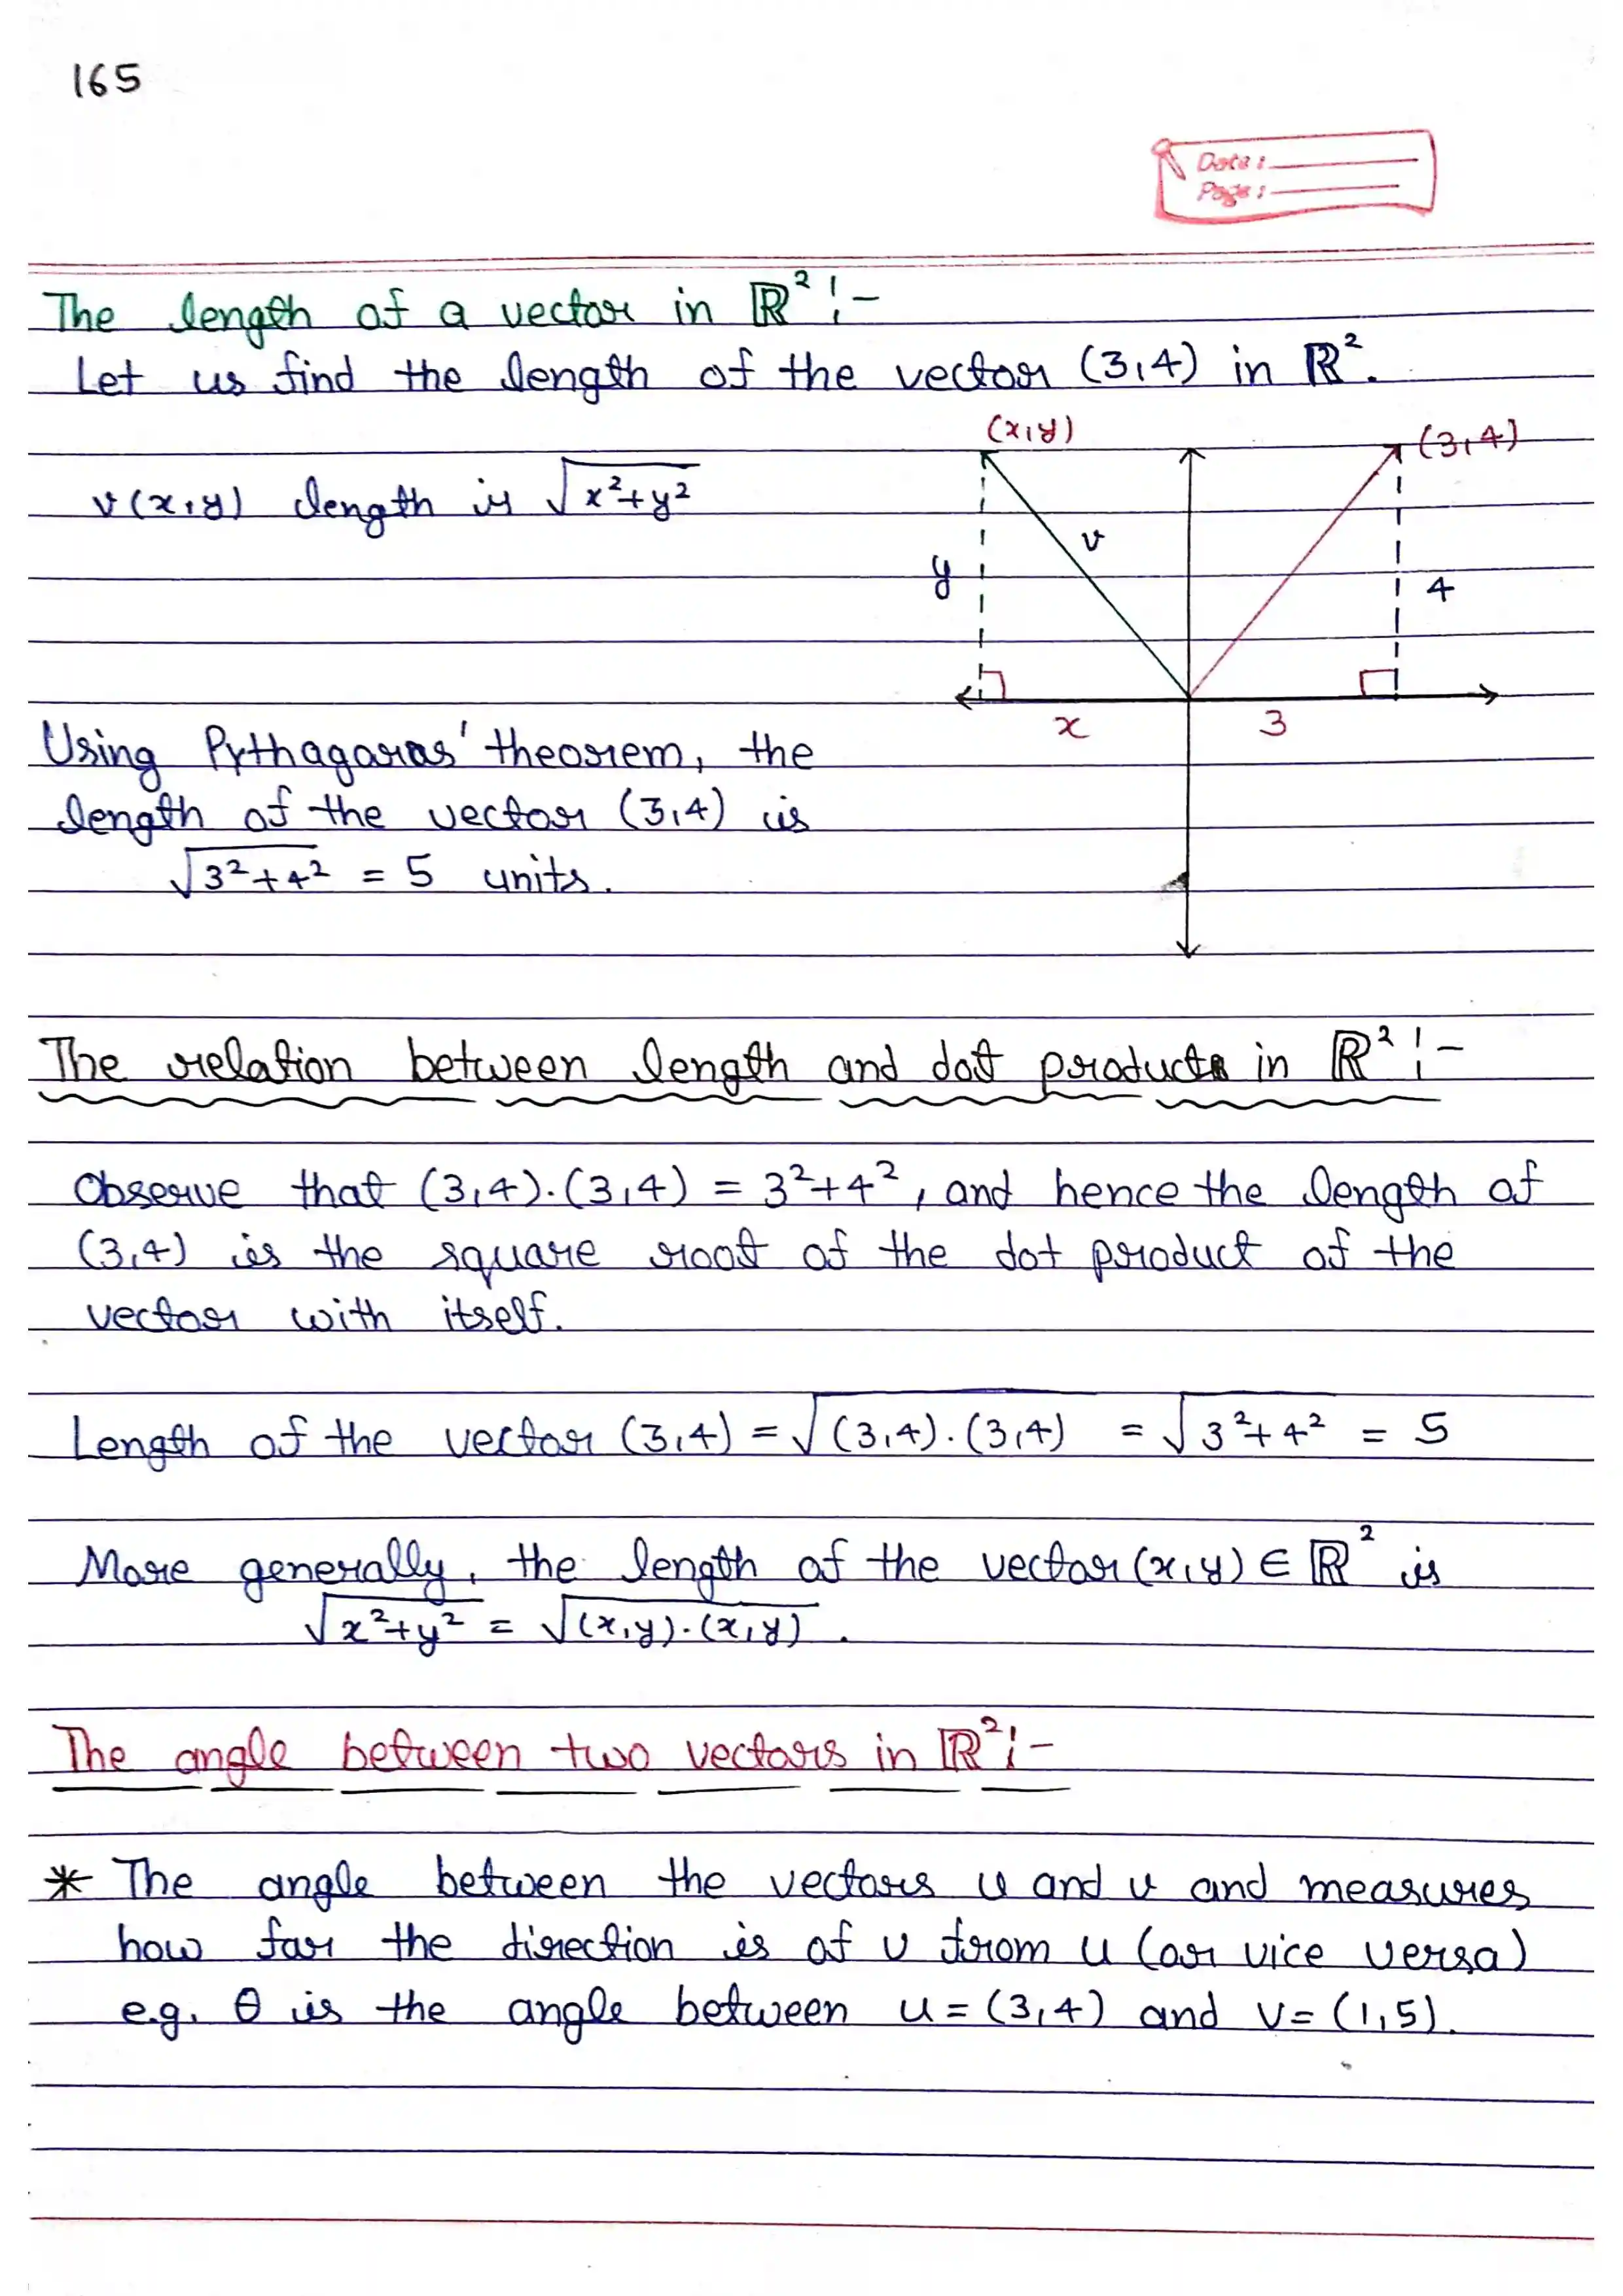 165
Date:
Page:
The length of a vector in ℝ² :-
Let us find the length of the vector (3,4) in ℝ².
(x,y)
(3,4)
v(x,y) length is √x²+y²
v
y
4
x
3
Using Pythagoras' theorem, the
length of the vector (3,4) is
√3²+4² = 5 units.
The relation between length and dot products in ℝ² :-
Observe that (3,4).(3,4) = 3²+4², and hence the length of
(3,4) is the square root of the dot product of the
vector with itself.
Length of the vector (3,4) = √(3,4).(3,4) = √3²+4² = 5
More generally, the length of the vector (x,y) ∈ ℝ² is
√x²+y² = √(x,y).(x,y) .
The angle between two vectors in ℝ² :-
* The angle between the vectors u and v and measures
how far the direction is of v from u (or vice versa)
e.g. θ is the angle between u = (3,4) and v = (1,5).